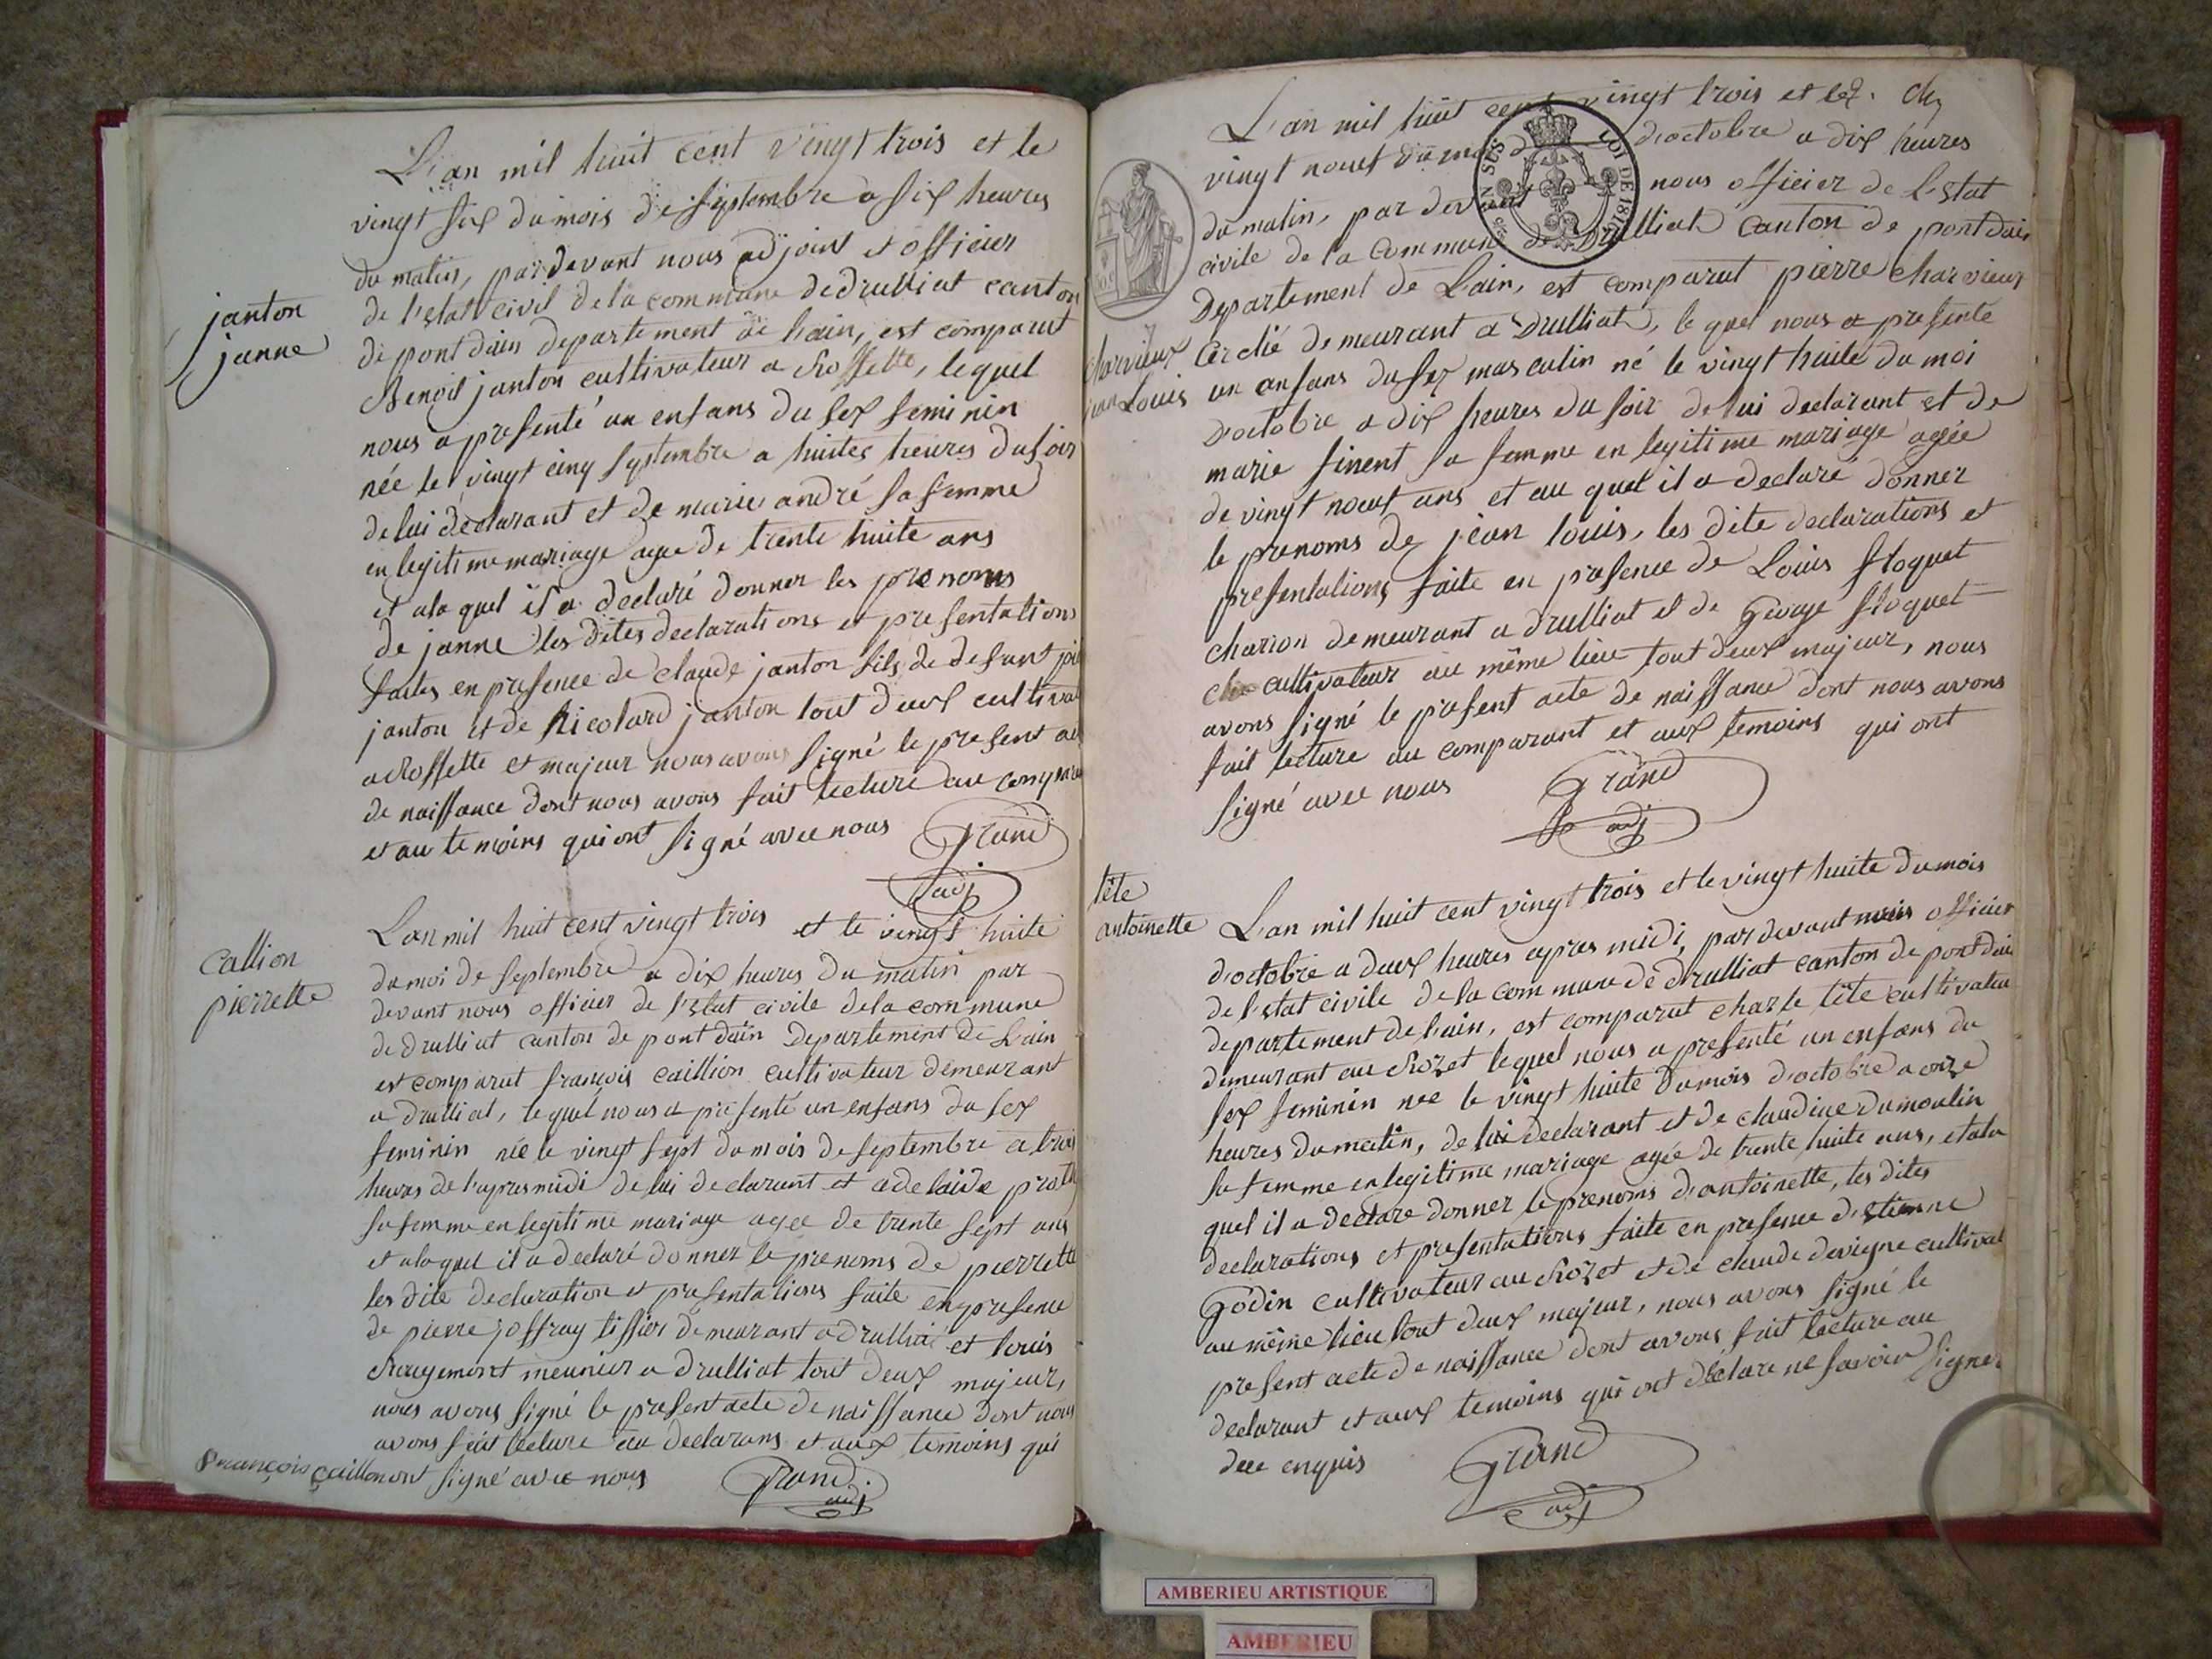 janton
janne
L'an mil huit cent vingt trois et le
vingt six du mois de septembre a six heures
du matin, par devant nous adjoint et officier
de l'estat civil de la commune de drulliat canton
de pont dain departement de lain, est comparut
Benoit janton cultivateur a Rossette, lequel
nous a presenté un enfans du sex feminin
née le vingt cinq septembre a huites heures du soir
de lui déclarant et de marie andré sa femme
en legitime mariage agee de trente huite ans
et ala quel il a declaré donner les prenoms
de janne les dites declarations et presentations
faites en presence de claude janton fils de defunt
janton et de Nicolard janton tout deux cultiva
a Rossette et majeur nous avons signé le present
de naissance dont nous avons fait lecture au
et au temoins qui ont signé avec nous Grand
adj
Callion
pierrette
L'an mil huit cent vingt trois et le vingt huite
du moi de septembre a dix heures du matin par
devant nous officier de l'estat civile de la commune
de drulliat canton de pont dain Departement de Lain
est comparut françois caillion cultivateur demeurant
a drulliat, le quel nous a presenté un enfans du sex
feminin née le vingt sept du mois de septembre a trois
heures de l'apres midi de lui declarant et adelaide
sa femme en legitime mariage agee de trente sept ans
et ala quel il a declaré donner le prenoms de pierrette
les dite declaration et presentations faite en presence
de pierre joffray tissier demeurant a drulliat et louis
Rougemont meunier a drulliat tout deux majeur,
nous avons signé le present acte de naissance dont nous
avons fait lecture au declarans et aux temoins qui
ont signé avec nous Grand
adj
françois caillon
L'an mil huit cent vingt trois et le
vingt noeuf du mois d'octobre a dix heures
du matin, par devant nous officier de l'estat
civile de la commune de Drulliat canton de pont dain
Departement de Lain, est comparut pierre charvieux
demeurant a Drulliat, le quel nous a presenté
charvieux
jean Louis
un enfans du sex masculin né le vingt huite du moi
d'octobre a dix heures du soir de lui declarant et de
marie finent sa femme en legitime mariage agée
de vingt noeuf ans et au quel il a declaré donner
le prenoms de jean louis, les dite declarations et
presentations faite en presence de Louis floquet
charron demeurant a drulliat et de George floquet
cultivateur au même lieu tout deux majeur, nous
avons signé le present acte de naissance dont nous avons
fait lecture au comparant et aux temoins qui ont
signé avec nous Grand
adj
EN SUS
LOI DE 181
tête
antoinette
L'an mil huit cent vingt trois et le vingt huite du mois
d'octobre a deux heures apres midi, par devant nous officier
de l'estat civile de la commune de drulliat canton de pont dain
departement de lain, est comparut charle tête cultivateur
demeurant au Rozet lequel nous a presenté un enfans du
sex feminin née le vingt huite du mois d'octobre a onze
heures du matin, de lui declarant et de claudine dumoulin
sa femme en legitime mariage agée de trente huite ans, et ala
quel il a declare donner le prenoms d'antoinette, les dites
declarations et presentations faite en presence d'estienne
Godin cultivateur au Rozet et de claude devigne cultivat
au même lieu tout deux majeur, nous avons signé le
present acte de naissance dont avons fait lecture au
declarant et aux temoins qui ont déclare ne savoir signer
de ce enquis Grand
adj
AMBERIEU ARTISTIQUE
AMBERIEU